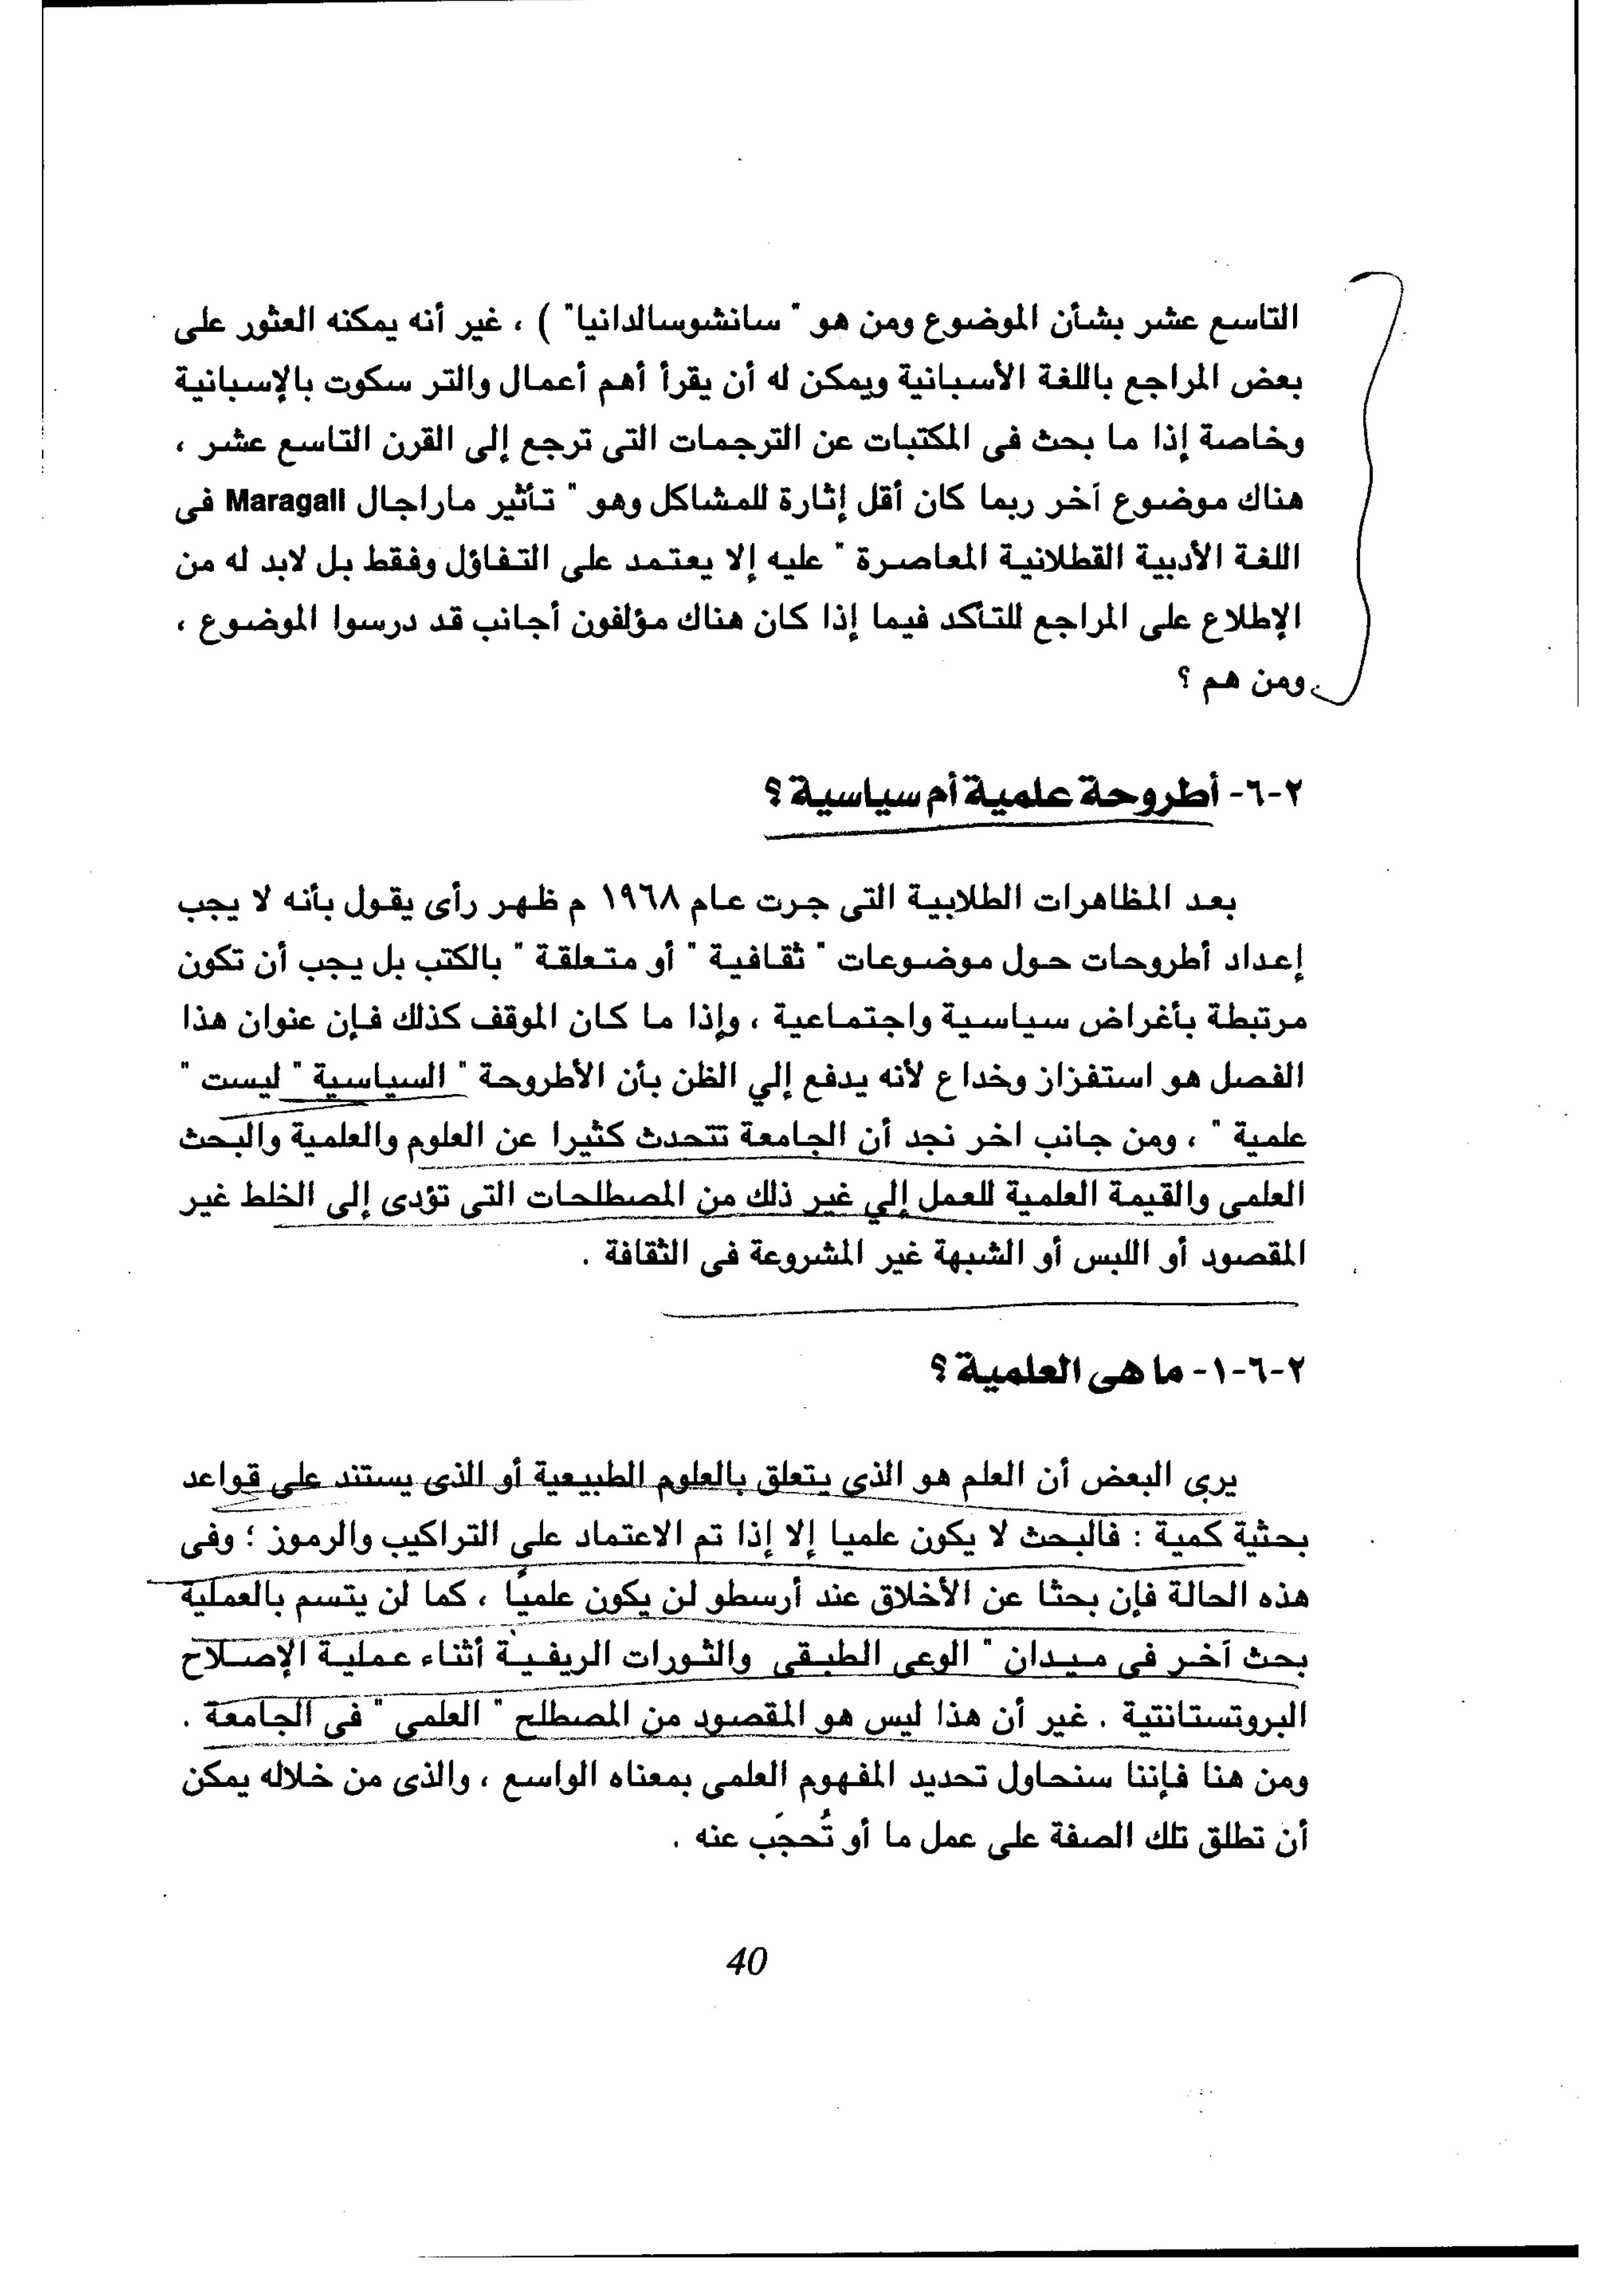 التاسع عشر بشأن الموضوع ومن هو " سانشوسالدانيا" ) ، غير أنه يمكنه العثور على
بعض المراجع باللغة الأسبانية ويمكن له أن يقرأ أهم أعمال والتر سكوت بالإسبانية
وخاصة إذا ما بحث فى المكتبات عن الترجمات التى ترجع إلى القرن التاسع عشر ،
هناك موضوع آخر ربما كان أقل إثارة للمشاكل وهو " تأثير ماراجال Maragall فى
اللغة الأدبية القطلانية المعاصرة " عليه إلا يعتمد على التفاؤل وفقط بل لابد له من
الإطلاع على المراجع للتأكد فيما إذا كان هناك مؤلفون أجانب قد درسوا الموضوع ،
ومن هم ؟
٢-٦- أطروحة علمية أم سياسية ؟
بعد المظاهرات الطلابية التى جرت عام ١٩٦٨ م ظهر رأى يقول بأنه لا يجب
إعداد أطروحات حول موضوعات " ثقافية " أو متعلقة " بالكتب بل يجب أن تكون
مرتبطة بأغراض سياسية واجتماعية ، وإذا ما كان الموقف كذلك فإن عنوان هذا
الفصل هو استفزاز وخداع لأنه يدفع إلي الظن بأن الأطروحة " السياسية " ليست "
علمية " ، ومن جانب اخر نجد أن الجامعة تتحدث كثيرا عن العلوم والعلمية والبحث
العلمى والقيمة العلمية للعمل إلي غير ذلك من المصطلحات التى تؤدى إلى الخلط غير
المقصود أو اللبس أو الشبهة غير المشروعة فى الثقافة .
٢-٦-١- ما هى العلمية ؟
يري البعض أن العلم هو الذي يتعلق بالعلوم الطبيعية أو الذى يستند على قواعد
بحثية كمية : فالبحث لا يكون علميا إلا إذا تم الاعتماد علي التراكيب والرموز ؛ وفى
هذه الحالة فإن بحثا عن الأخلاق عند أرسطو لن يكون علمياً ، كما لن يتسم بالعملية
بحث آخر فى ميدان " الوعى الطبقى والثورات الريفية أثناء عملية الإصلاح
البروتستانتية . غير أن هذا ليس هو المقصود من المصطلح " العلمي " فى الجامعة .
ومن هنا فإننا سنحاول تحديد المفهوم العلمى بمعناه الواسع ، والذى من خلاله يمكن
أن تطلق تلك الصفة على عمل ما أو تُحجَب عنه .
40